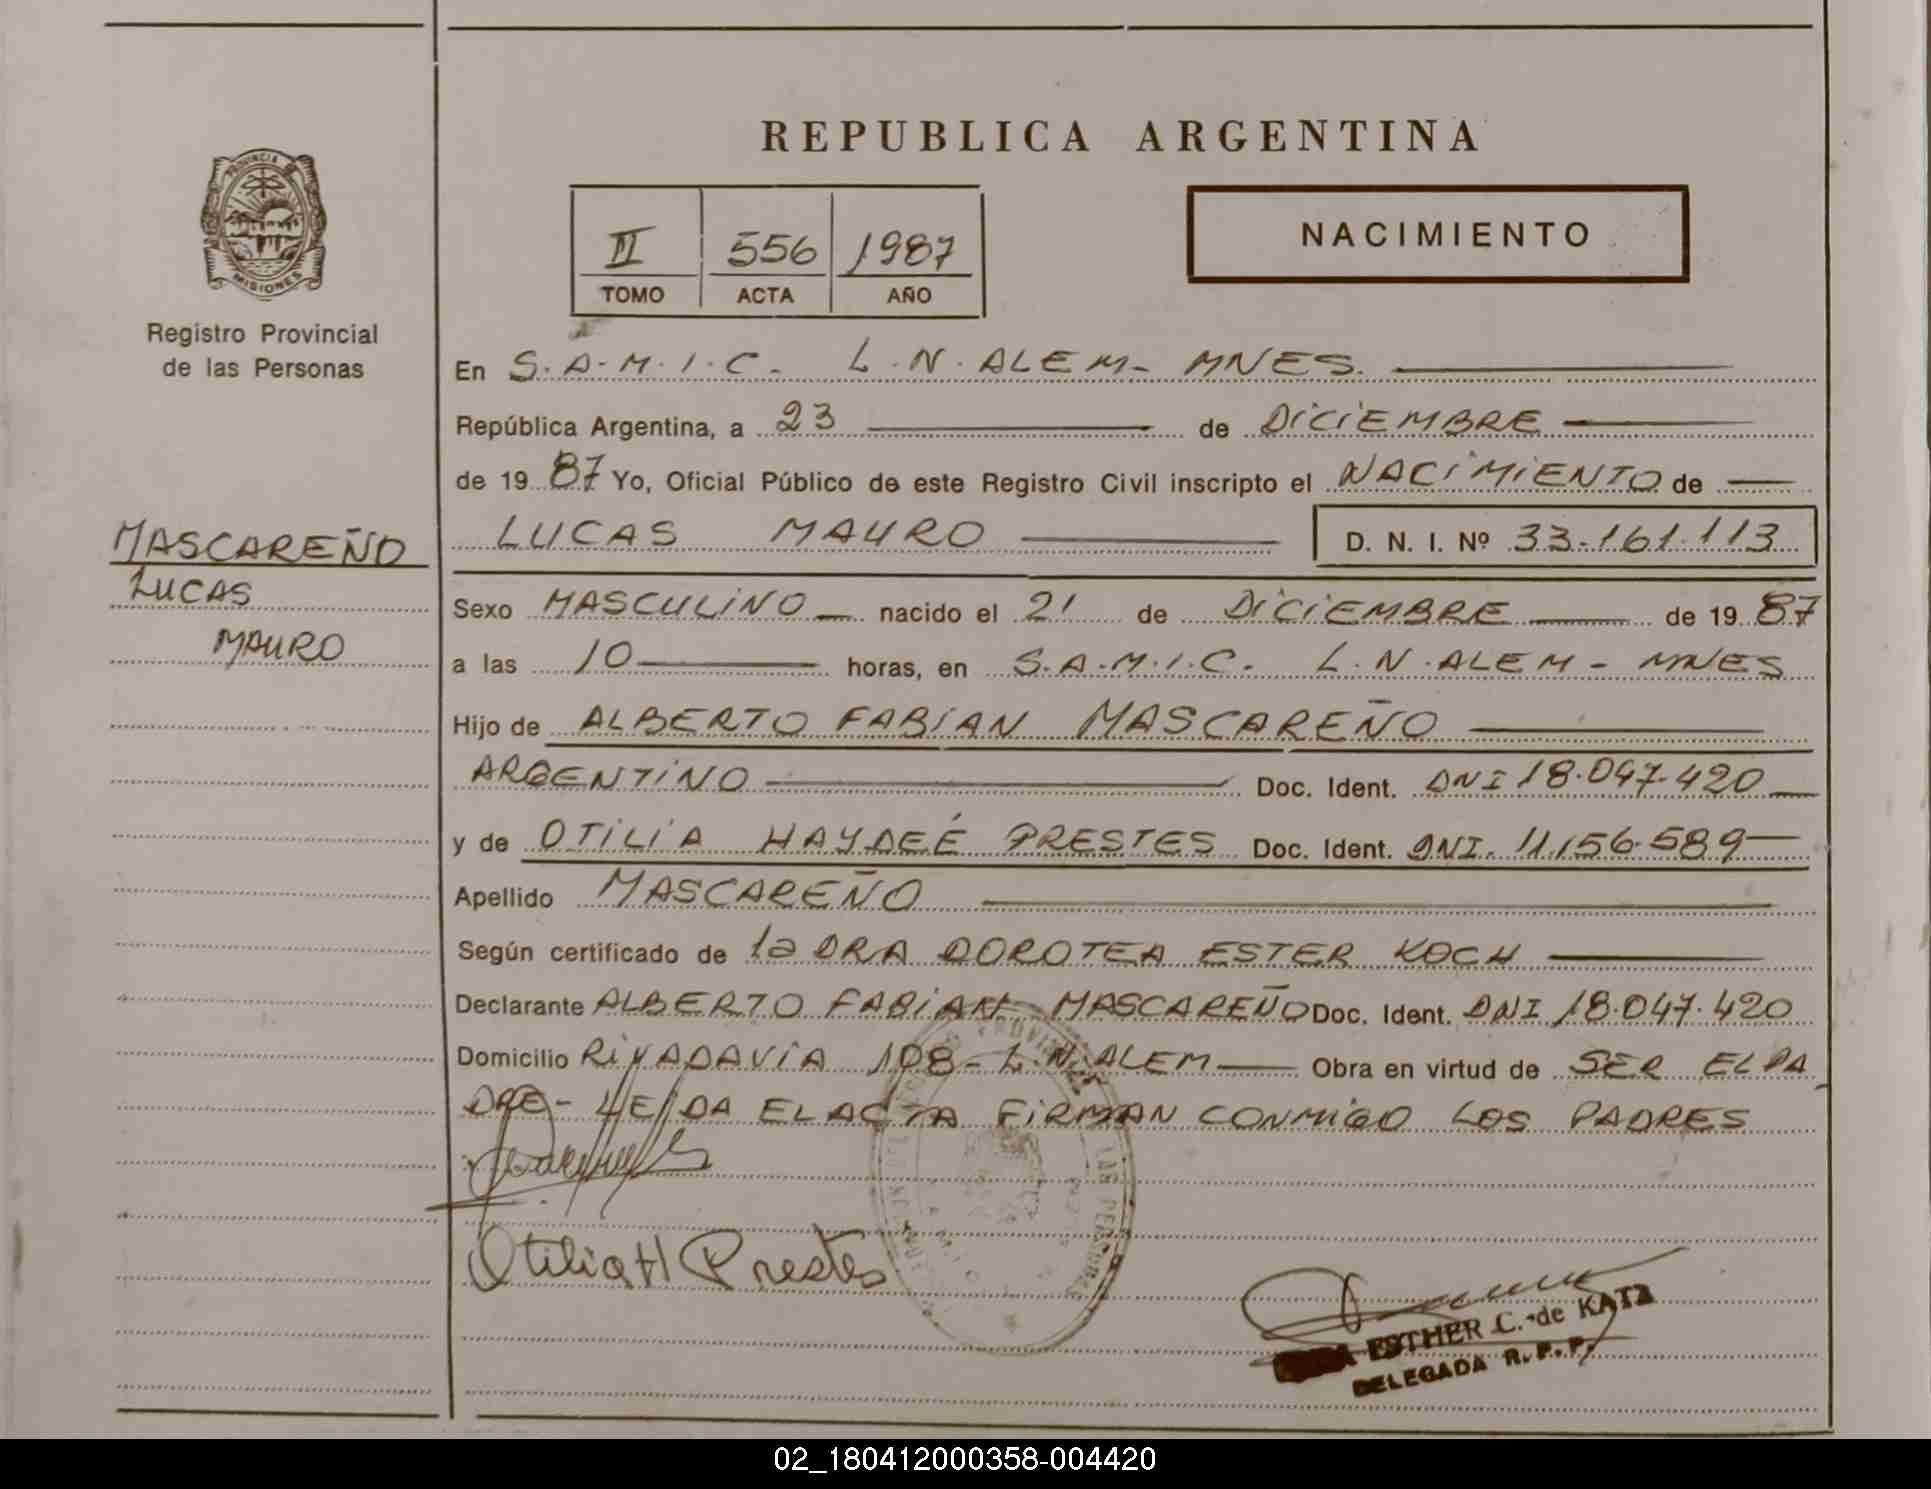 REPUBLICA ARGENTINA
PROVINCIA DE
MISIONES
Registro Provincial
de las Personas
II 556 1987
TOMO ACTA AÑO
NACIMIENTO
En S.A.M.I.C. L.N. ALEM - MNES.
República Argentina, a 23 de DICIEMBRE
de 1987 Yo, Oficial Público de este Registro Civil inscripto el NACIMIENTO de
MASCAREÑO
LUCAS
MAURO
LUCAS MAURO D. N. I. Nº 33.161.113
Sexo MASCULINO nacido el 21 de DICIEMBRE de 1987
a las 10 horas, en S.A.M.I.C. L.N. ALEM - MNES
Hijo de ALBERTO FABIAN MASCAREÑO
ARGENTINO Doc. Ident. DNI 18.047.420
y de OTILIA HAYDEÉ PRESTES Doc. Ident. DNI. 11.156.589
Apellido MASCAREÑO
Según certificado de la DRA DOROTEA ESTER KOCH
Declarante ALBERTO FABIAN MASCAREÑO Doc. Ident. DNI 18.047.420
Domicilio RIVADAVIA 108 - L.N. ALEM Obra en virtud de SER EL PA
DRE - LEIDA EL ACTA FIRMAN CONMIGO LOS PADRES
Otilia H Prestes
ESTHER C. de KATZ
DELEGADA R. P. P.
02_180412000358-004420